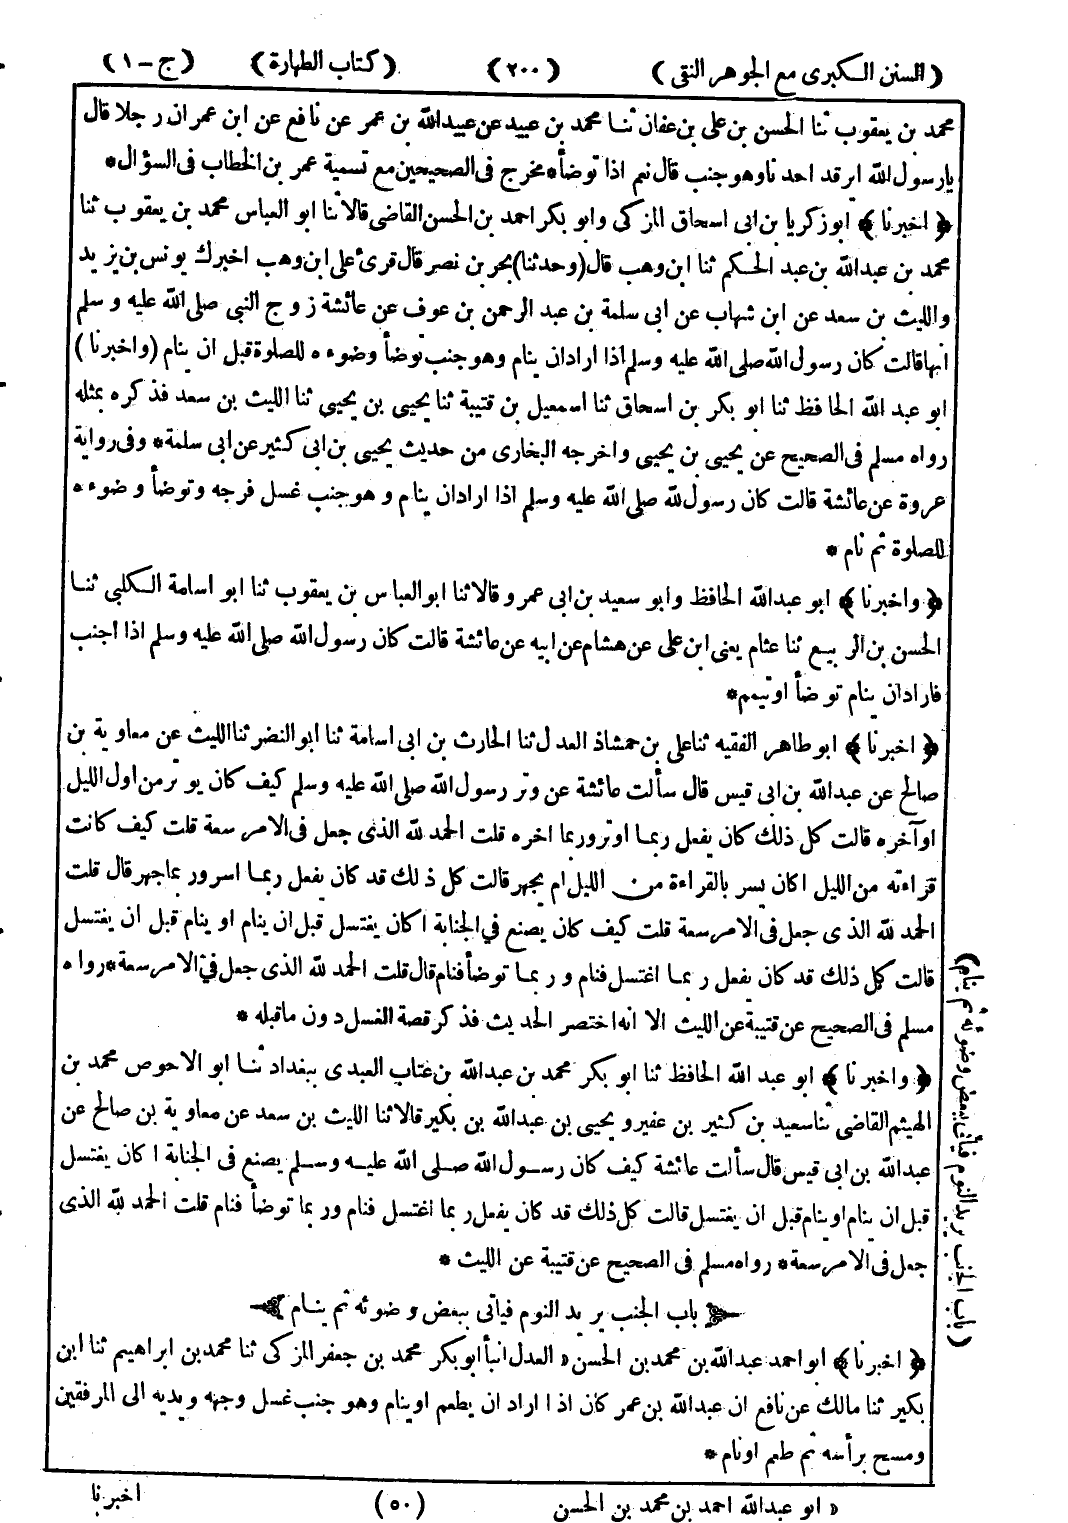 (السنن الكبرى مع الجوهر النقى) (٢٠٠) (كتاب الطهارة) (ج-١)
محمد بن يعقوب ثنا الحسن بن على بن عفان ثنا محمد بن عبيد عن عبيدالله بن عمر عن نافع عن ابن عمر ان رجلا قال
يا رسول الله ايرقد احدنا وهو جنب قال نعم اذا توضأ* مخرج فى الصحيحين مع تسمية عمر بن الخطاب فى السؤال*
﴿اخبرنا﴾ ابو زكريا بن ابى اسحاق المزكى وابو بكر احمد بن الحسن القاضى قالا ثنا ابو العباس محمد بن يعقوب ثنا
محمد بن عبدالله بن عبد الحكم ثنا ابن وهب قال (وحدثنا) بحر بن نصر قال قرئ على ابن وهب اخبرك يونس بن يزيد
والليث بن سعد عن ابن شهاب عن ابى سلمة بن عبد الرحمن بن عوف عن عائشة زوج النبي صلى الله عليه وسلم
انها قالت كان رسول الله صلى الله عليه وسلم اذا اراد ان ينام وهو جنب توضأ وضوءه للصلوة قبل ان ينام (واخبرنا)
ابو عبد الله الحافظ ثنا ابو بكر بن اسحاق ثنا اسمعيل بن قتيبة ثنا يحيى بن يحيى ثنا الليث بن سعد فذكره بمثله
رواه مسلم فى الصحيح عن يحيى بن يحيى واخرجه البخارى من حديث يحيى بن ابى كثير عن ابى سلمة* وفى رواية
عروة عن عائشة قالت كان رسول لله صلى الله عليه وسلم اذا اراد ان ينام وهو جنب غسل فرجه وتوضأ وضوءه
للصلوة ثم نام*
﴿واخبرنا﴾ ابو عبدالله الحافظ وابو سعيد بن ابى عمرو قالا ثنا ابو العباس بن يعقوب ثنا ابو اسامة الكلبي ثنا
الحسن بن الربيع ثنا عثام يعنى ابن على عن هشام عن ابيه عن عائشة قالت كان رسول الله صلى الله عليه وسلم اذا اجنب
فاراد ان ينام توضأ او تيمم*
﴿اخبرنا﴾ ابو طاهر الفقيه ثنا على بن حمشاذ العدل ثنا الحارث بن ابى اسامة ثنا ابو النضر ثنا الليث عن معاوية بن
صالح عن عبدالله بن ابى قيس قال سألت عائشة عن وتر رسول الله صلى الله عليه وسلم كيف كان يوتر من اول الليل
او آخره قالت كل ذلك كان يفعل ربما اوتر وربما اخره قلت الحمد لله الذى جعل فى الامر سعة قلت كيف كانت
قراءته من الليل اكان يسر بالقراءة من الليل ام يجهر قالت كل ذلك قد كان يفعل ربما اسر وربما جهر قال قلت
الحمد لله الذى جعل فى الامر سعة قلت كيف كان يصنع في الجنابة اكان يغتسل قبل ان ينام او ينام قبل ان يغتسل
قالت كل ذلك قد كان يفعل ربما اغتسل فنام وربما توضأ فنام قال قلت الحمد لله الذى جعل في الامر سعة* رواه
مسلم فى الصحيح عن قتيبة عن الليث الا انه اختصر الحديث فذكر قصة الغسل دون ما قبله*
﴿واخبرنا﴾ ابو عبد الله الحافظ ثنا ابو بكر محمد بن عبدالله بن عتاب العبدى ببغداد ثنا ابو الاحوص محمد بن
الهيثم القاضى ثنا سعيد بن كثير بن عفير ويحيى بن عبدالله بن بكير قالا ثنا الليث بن سعد عن معاوية بن صالح عن
عبدالله بن ابى قيس قال سألت عائشة كيف كان رسول الله صلى الله عليه وسلم يصنع فى الجنابة اكان يغتسل
قبل ان ينام او ينام قبل ان يغتسل قالت كل ذلك قد كان يفعل ربما اغتسل فنام وربما توضأ فنام قلت الحمد لله الذى
جعل فى الامر سعة* رواه مسلم فى الصحيح عن قتيبة عن الليث*
باب الجنب يريد النوم فياتى ببعض وضوئه ثم ينام
﴿اخبرنا﴾ ابو احمد عبدالله بن محمد بن الحسن « العدل انبأ ابو بكر محمد بن جعفر المزكى ثنا محمد بن ابراهيم ثنا ابن
بكير ثنا مالك عن نافع ان عبدالله بن عمر كان اذا اراد ان يطعم او ينام وهو جنب غسل وجهه ويديه الى المرفقين
ومسح برأسه ثم طعم او نام*
« ابو عبدالله احمد بن محمد بن الحسن (٥٠) اخبرنا
(باب الجنب يريد النوم فيأتى ببعض وضوئه ثم ينام)